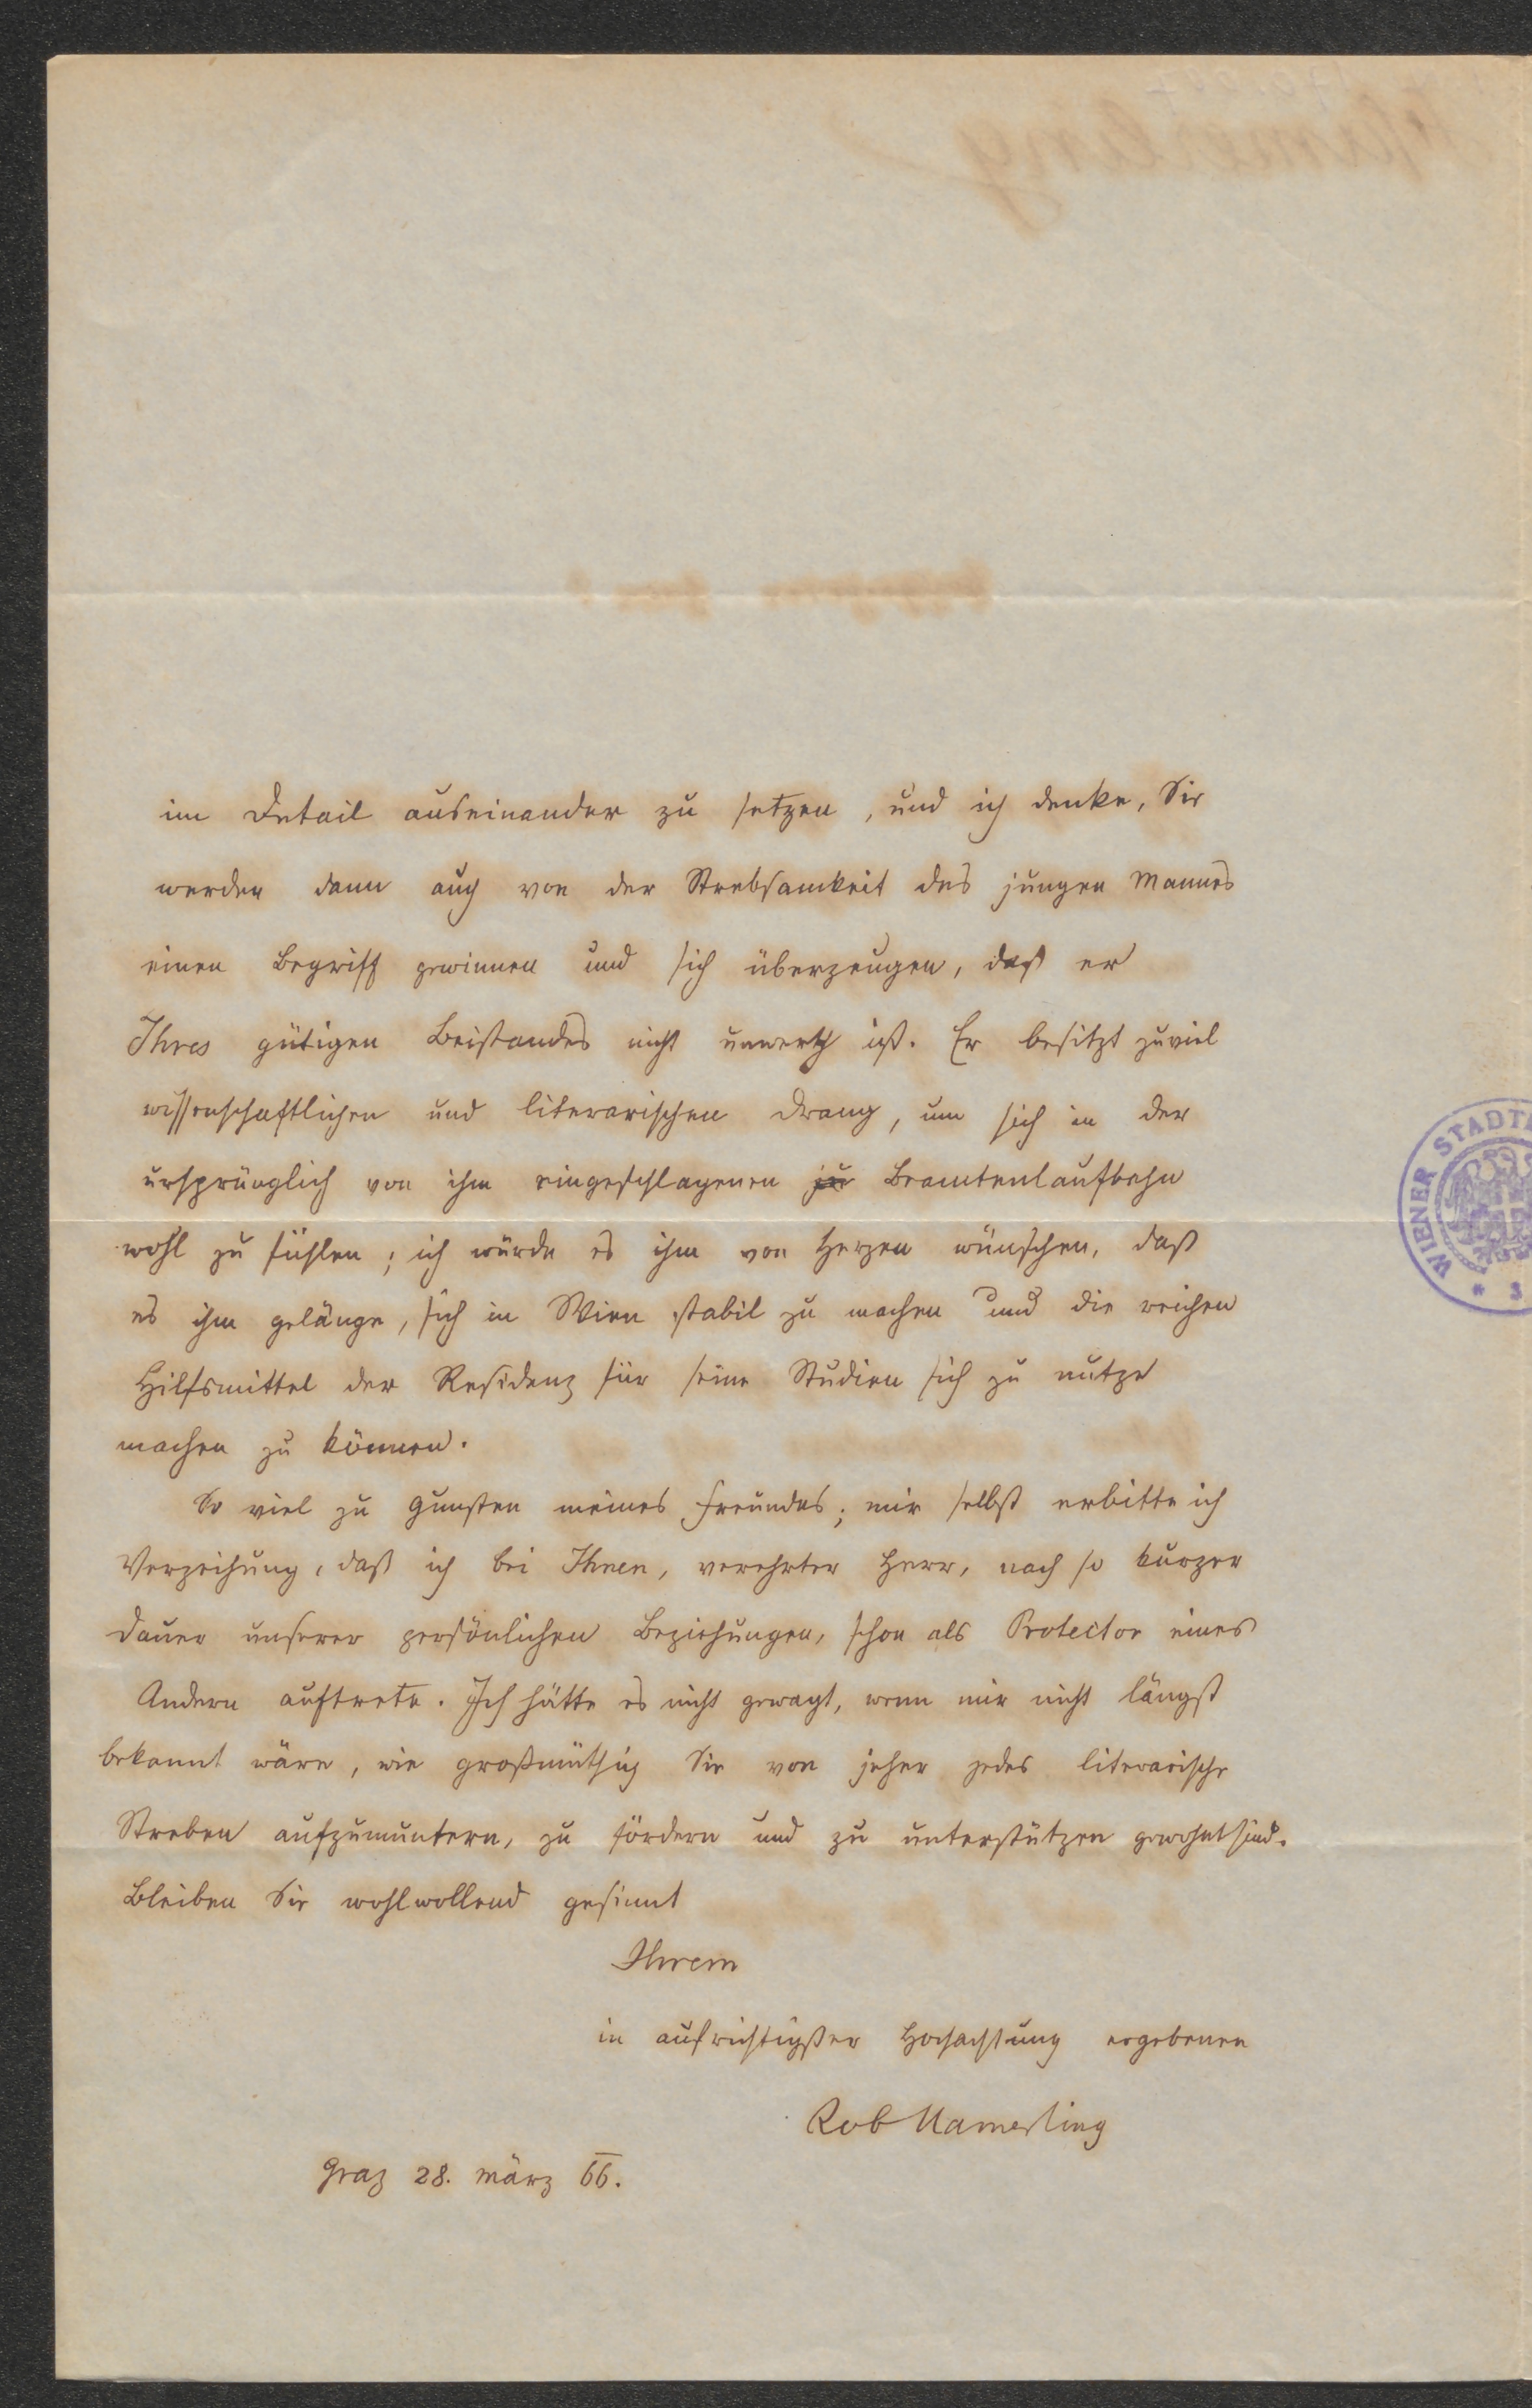 im Detail auseinander zu setzen, und ich denke, Sie
werden dann auch von der Strebsamkeit des jungen Mannes
einen Begriff gewinnen und sich überzeugen, daß er
Ihres gütigen Beistandes nicht unwerth ist. Er besitzt zuviel
wissenschaftlichen und literarischen Drang, um sich in der
ursprünglich von ihm eingeschlagenen Beamtenlaufbahn
wohl zu fühlen; ich würde es ihm von Herzen wünschen, daß
es ihm gelänge, sich in Wien stabil zu machen und die reichen
Hilfsmittel der Residenz für seine Studien sich zu nutze
machen zu können.
So viel zu Gunsten meines Freundes; mir selbst erbitte ich
Verzeihung, daß ich bei Ihnen, verehrter Herr, nach so kurzer
Dauer unserer persönlichen Beziehungen, schon als Protector eines
Andern auftrete. Ich hätte es nicht gewagt, wenn mir nicht längst
bekannt wäre, wie großmüthig Sie von jeher jedes literarische
Streben aufzumuntern, zu fördern und zu unterstützen gewohnt sind.
Bleiben Sie wohlwollend gesinnt
Ihrem
in aufrichtigster Hochachtung ergebenen
Rob Hamerling
Graz 28. März 66.
WIENER STADT